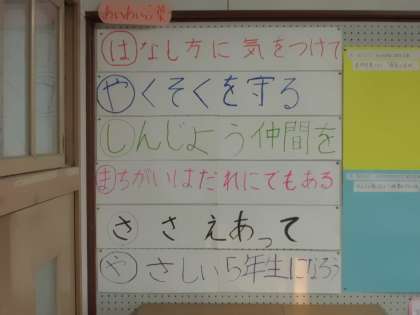 はなし方に気をつけて
やくそくを守る
しんじよう仲間を
まちがいはだれにでもある
ささえあって
やさしい5年生になろう